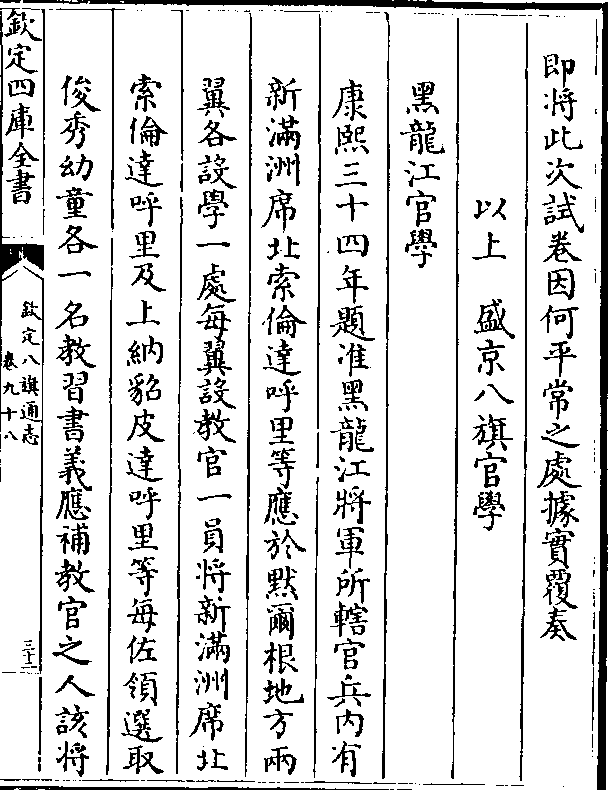 即將此次試卷因何平常之處據實覆奏
以上　盛京八旗官學
黑龍江官學
康熙三十四年題准黑龍江將軍所轄官兵内有
新滿洲席北索倫達呼里等應於黙爾根地方兩
翼各設學一處每翼設教官一員將新滿洲席北
索倫達呼里及上納貂皮達呼里等每佐領選取
俊秀幼童各一名教習書義應補教官之人該將
欽定四庫全書
欽定八旗通志
卷九十八
三十二